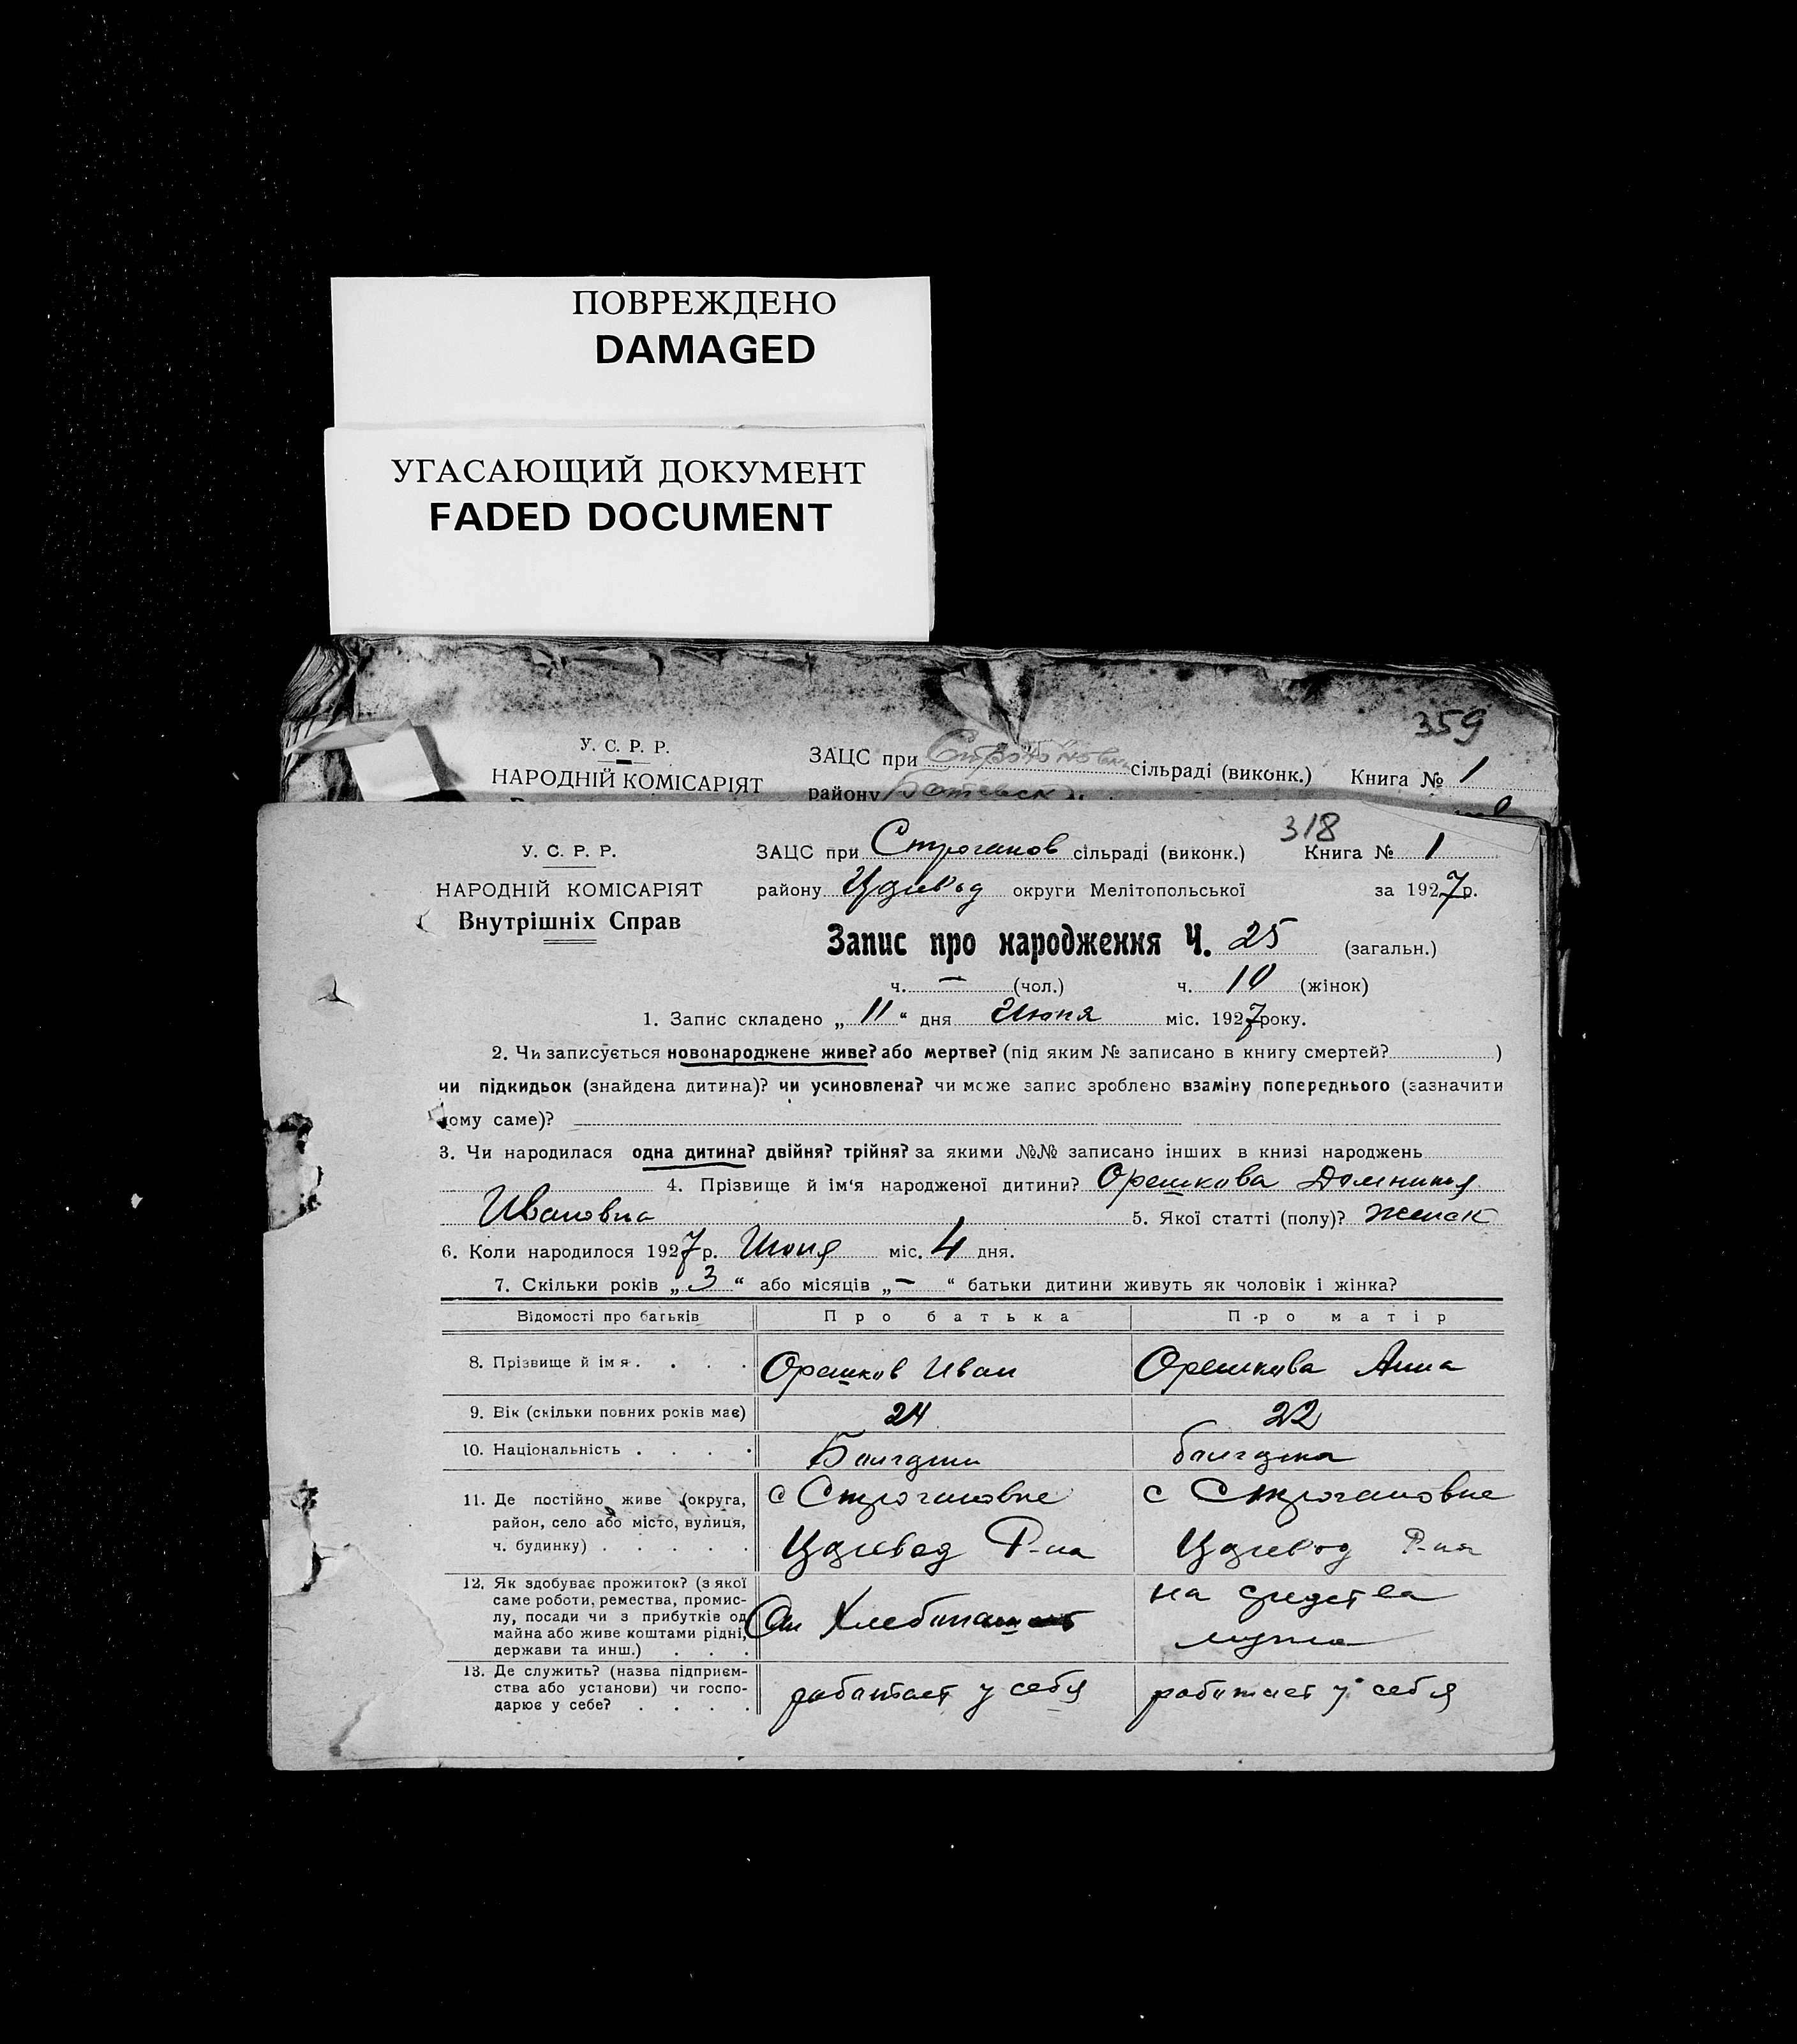 ПОВРЕЖДЕНО
DAMAGED
УГАСАЮЩИЙ ДОКУМЕНТ
FADED DOCUMENT
359
У. С. Р. Р.
НАРОДНІЙ КОМІСАРІЯТ
ЗАЦС при сільраді (виконк.) Книга № 1
району
318
У. С. Р. Р.
НАРОДНІЙ КОМІСАРІЯТ
Внутрішніх Справ
ЗАЦС при Строганов сільраді (виконк.) Книга № 1
району Царевод округи Мелітопольської за 1927р.
Запис про народження Ч. 25 (загальн.)
ч. — (чол.) ч. 10 (жінок)
1. Запис складено „ 11 “ дня Июня міс. 1927 року.
2. Чи записується новонароджене живе? або мертве? (під яким № записано в книгу смертей? )
чи підкидьок (знайдена дитина)? чи усиновлена? чи може запис зроблено взаміну попереднього (зазначити
кому саме)?
3. Чи народилася одна дитина? двійня? трійня? за якими №№ записано інших в книзі народжень
4. Прізвище й ім‘я народженої дитини? Орешкова Домникия
Ивановна 5. Якої статті (полу)? женск
6. Коли народилося 1927 р. Июня міс. 4 дня.
7. Скільки років „ 3 “ або місяців „ — “ батьки дитини живуть як чоловік і жінка?
Відомості про батьків Про батька Про матір
8. Прізвище й імя . . . . Орешков Иван Орешкова Анна
9. Вік (скільки повних років має) 24 22
10. Національність . . . . Болгарин болгарка
11. Де постійно живе (округа,
район, село або місто, вулиця,
ч. будинку) . . . . .
с Строгановке
Царевод Р-на
с Строгановке
Царевод Р-на
12. Як здобуває прожиток? (з якої
саме роботи, ремества, промис-
лу, посади чи з прибутків од
майна або живе коштами рідні,
держави та инш.) . . .
Хлебопаш
на средства
мужа
13. Де служить? (назва підприєм-
ства або установи) чи госпо-
дарює у себе? . . . .
работает у себя
работает у себя